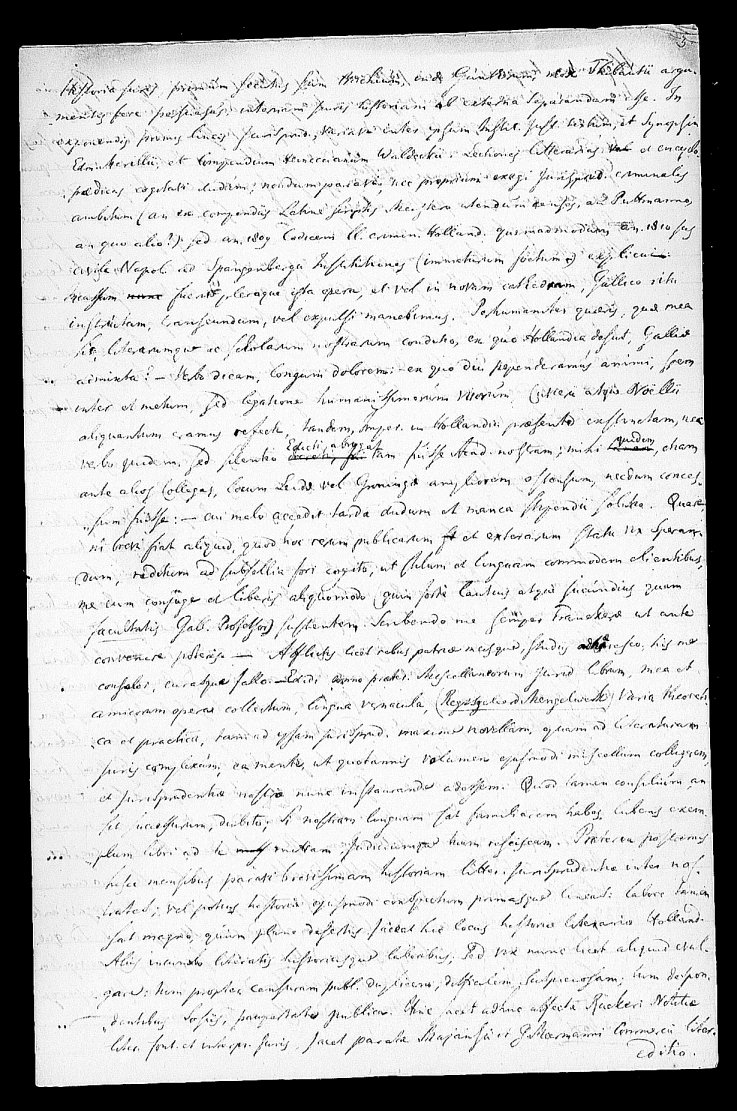 Historia juris primum secutus sum Bachium, unde Guntherum, mox Thibautii argu-
mentis fere persuasus, internam juris historiam ab externa separandam esse. In
exponendis primis lineis jurisprud. variavi inter ipsum Institut. Just. textum, et Synopsin
et Compendium Heineccianum Waldeckii: Lectiones litterarias et encyclo-
pædicas cogitavi dudum; nondum paravi, nec proprium exegi Jurisprud. criminalis
ambitum (an ex compendiis Latine scriptis Meistero utendum censes, an Puttmanno,
an quo alio?) sed an. 1809 Codicem ll. crimin. Holland. quemadmodum an. 1810 jus
civile Napol. ad Spangenbergii Institutiones (immaturum foetum) explicui
fuerit, pleraque ista opera, et vel in novam cathedram, Gallico ritu
instructam, transeundum, vel expulsi manebimus. Perhumaniter quæris, quæ mea
sit, literarumque ac scholarum nostrarum conditio, ex quo Hollandia desiit, Galliæ
adjuncta? — Verbo dicam, longum dolorem: ex quo diu pependeramus animi, spem
inter et metum, sed legatione humanissimorum virorum, Cuvieri atque Noëlii
aliquantum eramus refecti, tandem, Imper. in Hollandia præsente instructam, nec
verbo quidem, sed silentio Edicti, abrogatam fuisse Acad. nostram; mihi quidem, etiam
ante alios Collegas, locum Leidæ vel Groningæ ampliorem ostensum, necdum conces-
sum fuisse: — cui malo accedit tarda dudum et manca stipendii solutio. Quare,
ni brevi fiat aliquid, quod hoc rerum publicarum et exterarum statu vix speran-
dum, reditum ad subsellia fori cogito, ut stilum et linguam commodem clientibus,
me cum conjuge et liberis aliquomodo (quin forte lautius atque jucundius quam
facultatis Gall. Professor) sustentem. Scribendo me semper Franekeræ ut ante
convenire poteris. — Afflictis licet rebus patriæ meisque, studiis adhæresco, his me
consolor, curasque fallo. — Edidi anno præter. Miscellaneorum jurid. librum, mea et
amicorum opera collectum, lingua vernacula, (Regtsgeleerd Mengelwerk) varia theoreti-
ca et practica, tam ad ipsam jurisprud. maxime novellam, quam ad literaturam
juris complexum, ea mente, ut quotannis volumen ejusmodi miscellum colligerem,
et jurisprudentiæ nostræ nunc instaurandæ adessem. Quod tamen consilium an
sit successurum, dubito; si nostram linguam sat familiarem habes, lubens exem-
plum libri ad te mittam judiciumque tuum resciscam. Præterea postremis
hisce mensibus paravi brevissimam historiam litter. jurisprudentiæ inter nos-
trates; vel potius historiæ ejusmodi conspectum primasque lineas: labore tamen
sat magno, quum plane desertus jaceat hic locus historiæ literariæ Holland.
Aliis incumbo literariis historicisque laboribus; sed vix nunc licet aliquid evul-
gare: tum propter censuram publ. duplicem, difficilem, suspiciosam; tum despon-
dentibus sociis, paupertate publica. Hinc jacet adhuc affecta Rückeri Notitia
liter. font. et interpr. juris, jacet parata Majansii et G. Meermanni Commercii liter.
editio.